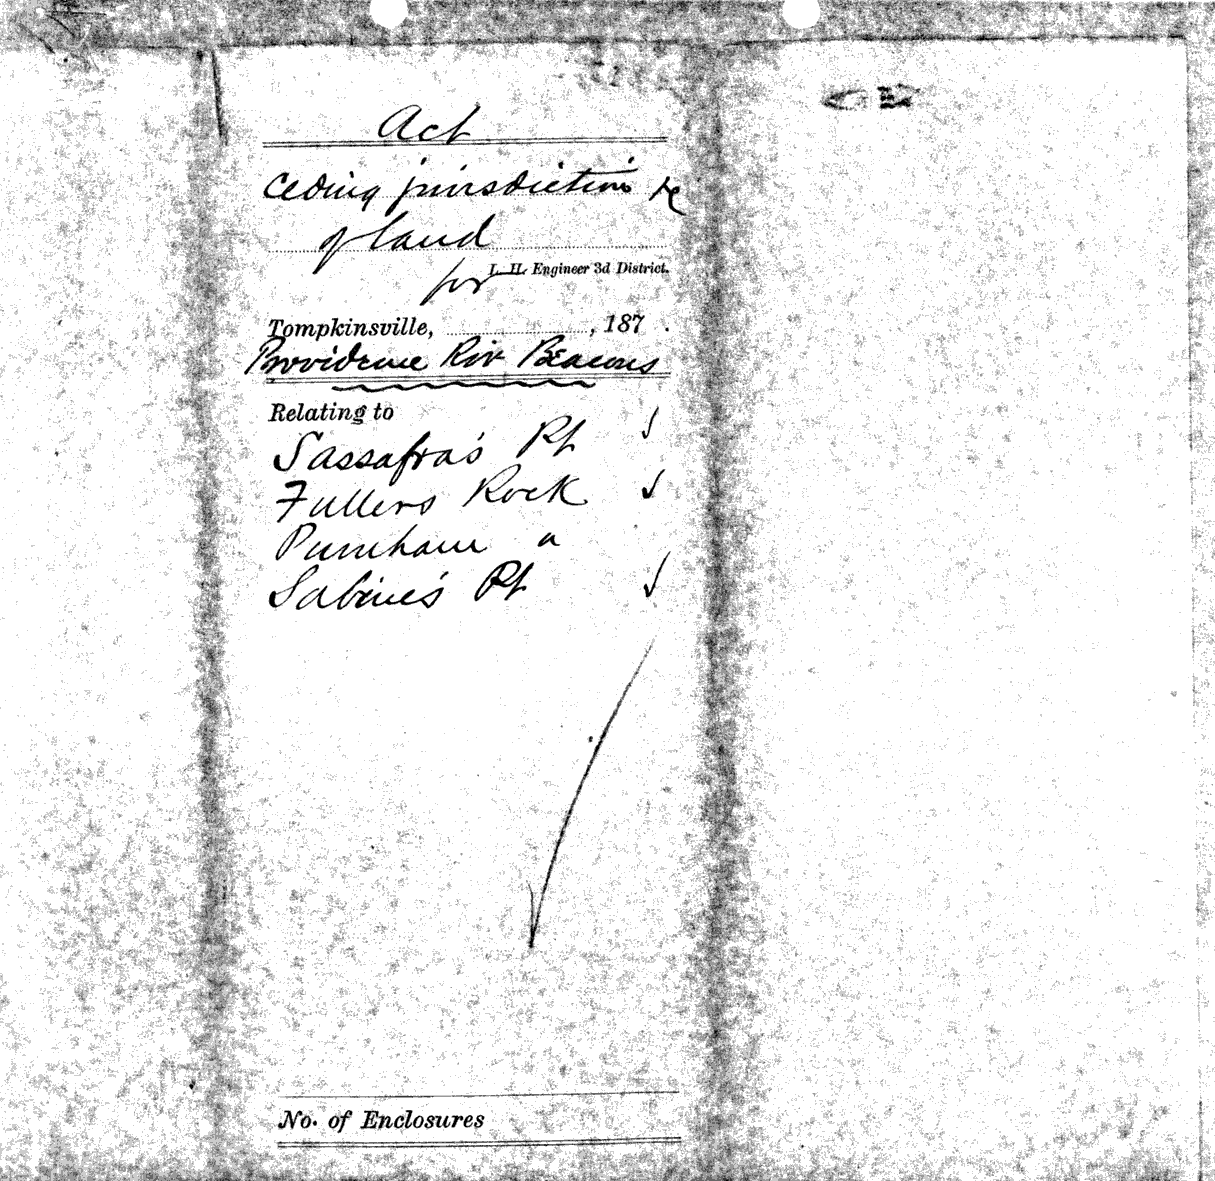 Act
ceding jurisdiction &c
of land
L. H. Engineer 3d District.
for
Tompkinsville, , 187 .
Providence Riv Beacons
Relating to
Sassafras Pt
Fullers Rock
Pumham "
Sabine's Pt
No. of Enclosures